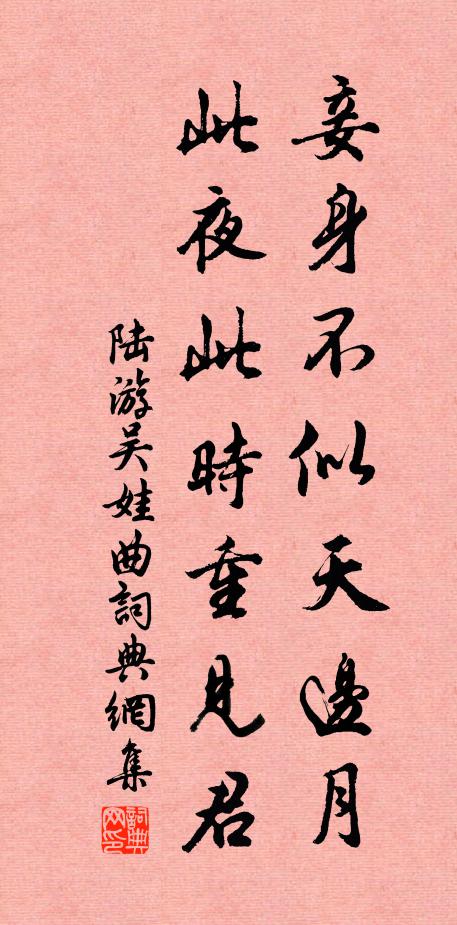 妾身不似天邊月
此夜此時重見君
陆游吴娃曲詞典網集
詞典网印